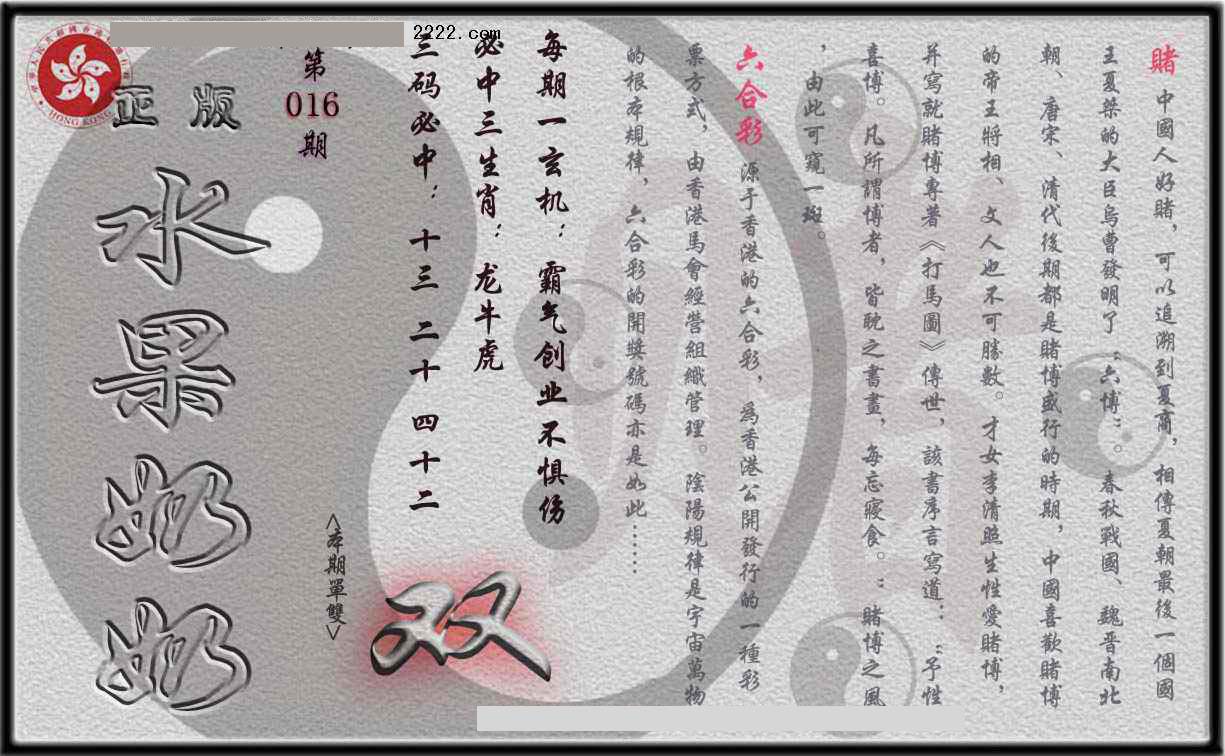 2222.com
賭 中國人好賭，可以追溯到夏商，相傳夏朝最後一個國
王夏桀的大臣烏曹發明了“六博”。春秋戰國、魏晉南北
朝、唐宋、清代後期都是賭博盛行的時期，中國喜歡賭博
的帝王將相、文人也不可勝數。才女李清照生性愛賭博，
并寫就賭博專著《打馬圖》傳世，該書序言寫道：“予性
喜博。凡所謂博者，皆耽之書畫，每忘寢食。“賭博之風
，由此可窺一斑。
六合彩 源于香港的六合彩，為香港公開發行的一種彩
票方式，由香港馬會經營組織管理。陰陽規律是宇宙萬物
的根本規律，六合彩的開獎號碼亦是如此……
每期一玄机：霸气创业不惧傍
必中三生肖：龙牛虎
三码必中：十三 二十 四十二
第
016
期
<本期單雙>
双
正版
水果奶奶
HONG KONG